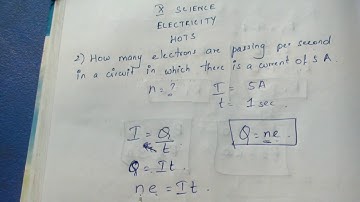 X SCIENCE
ELECTRICITY
HOTS
2) How many electrons are passing per second
in a circuit in which there is a current of 5 A.
n = ? I = 5A
t = 1 sec.
I = Q/t Q = ne.
Q = It
ne = It.